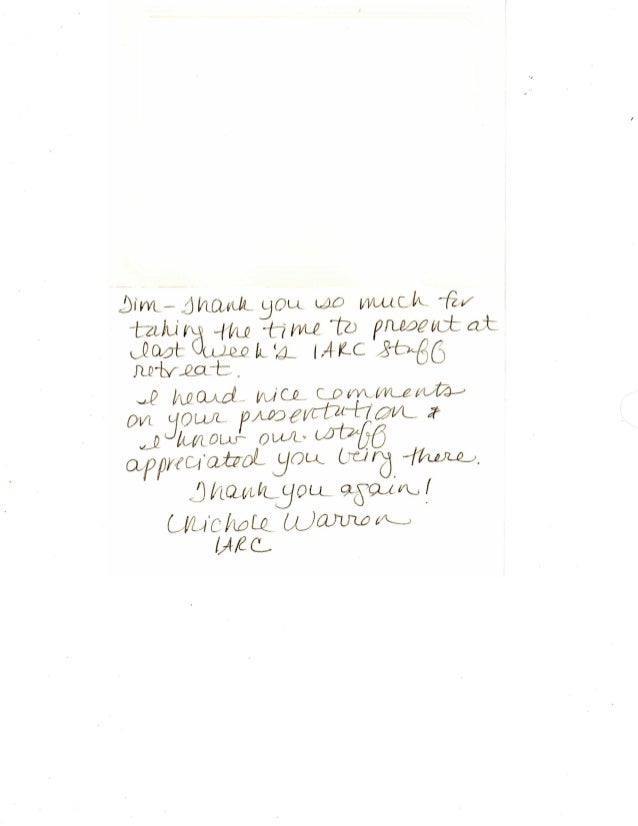 Jim - Thank you so much for
taking the time to present at
last week's IARC Staff
retreat.
I heard nice comments
on your presentation &
I know our staff
appreciated you being there.
Thank you again!
Nichole Warren
IARC